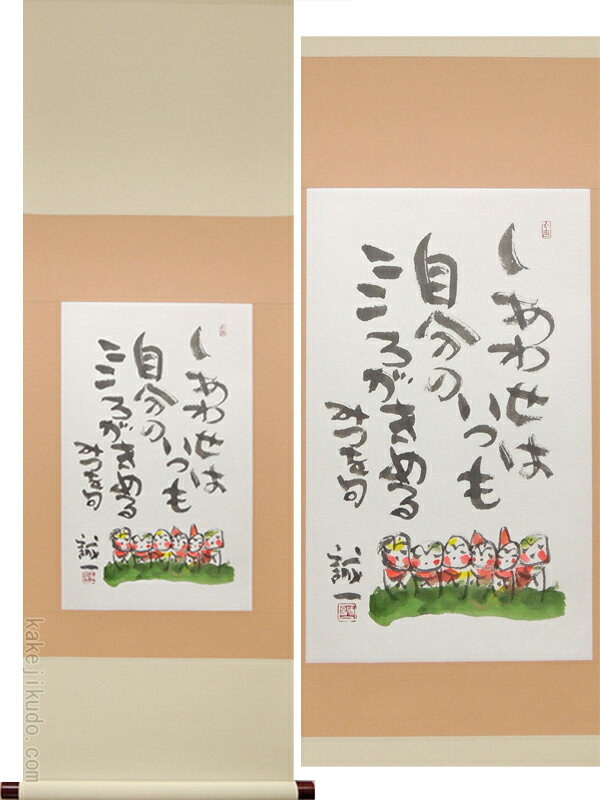 しあわせは
いつも
自分の
こころがきめる
みつを句
誠一
しあわせは
いつも
自分の
こころがきめる
みつを句
誠一
kakejikudo.com